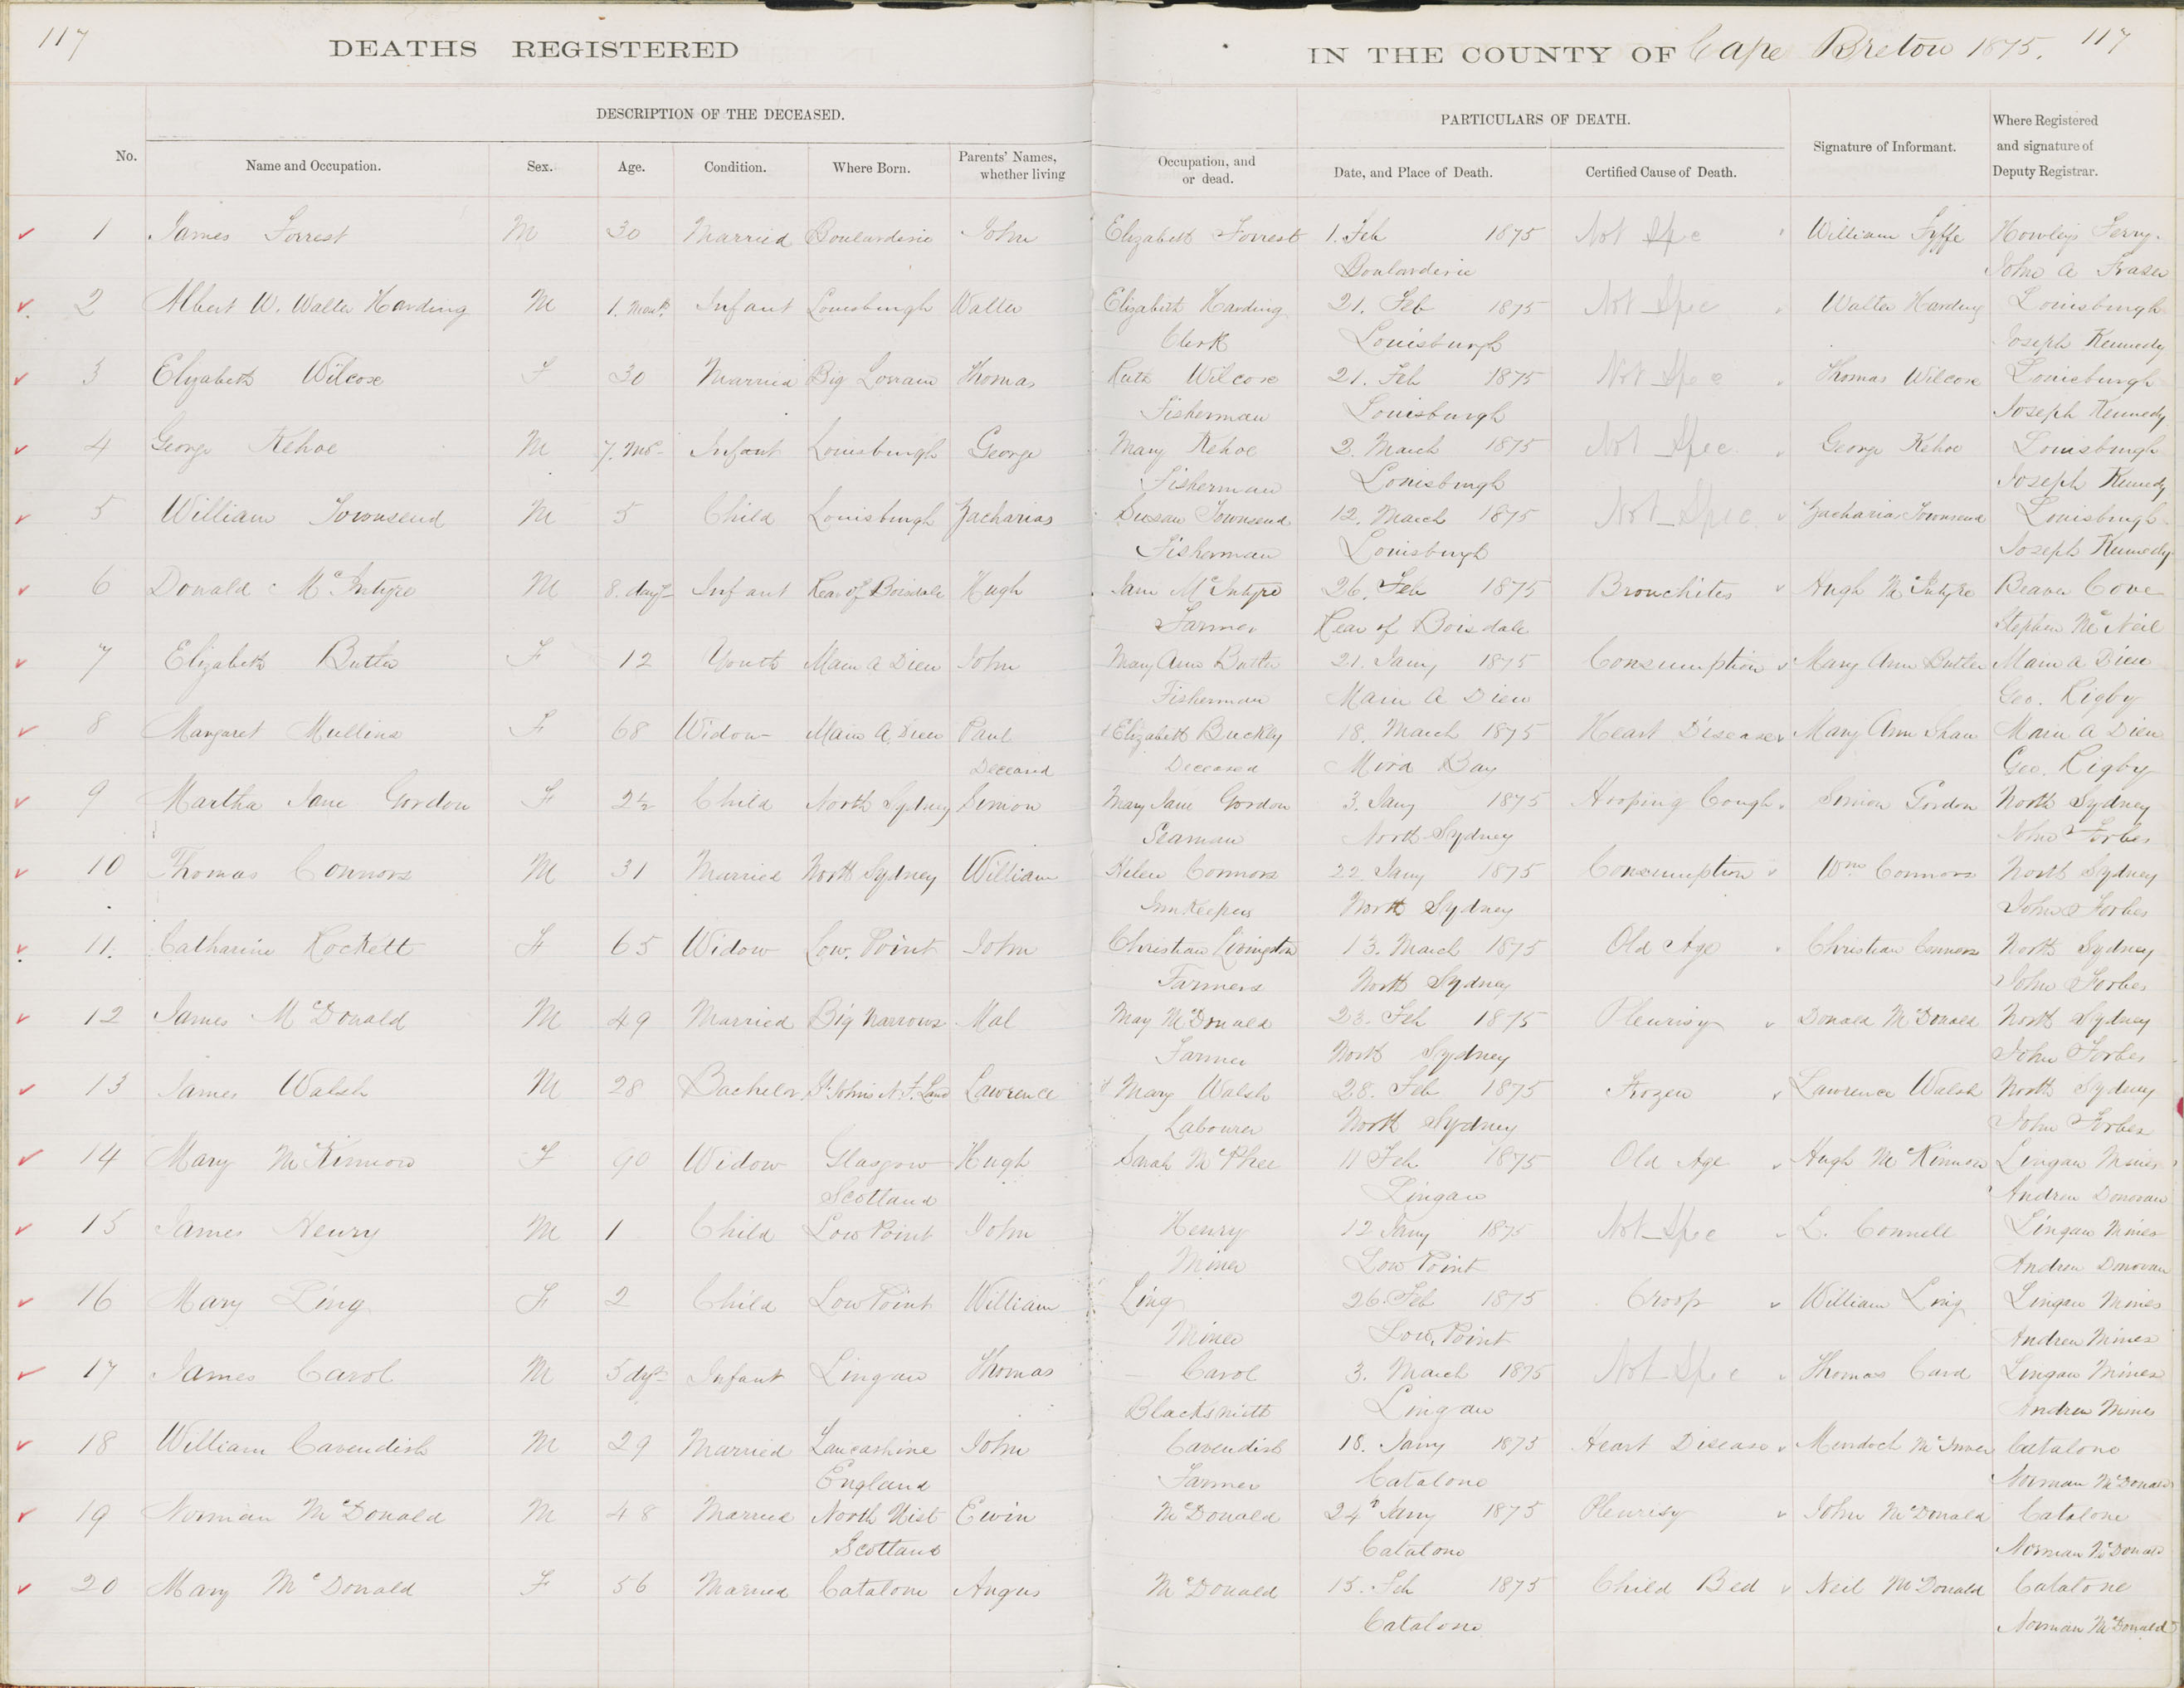 117
DEATHS REGISTERED
IN THE COUNTY OF Cape Breton 1875. 117
DESCRIPTION OF THE DECEASED.
PARTICULARS OF DEATH.
No.
Name and Occupation.
Sex.
Age.
Condition.
Where Born.
Parents' Names, whether living
Occupation, and or dead.
Date, and Place of Death.
Certified Cause of Death.
Signature of Informant.
Where Registered and signature of Deputy Registrar.
1 James Forrest M 30 Married Boulardrie John Elizabeth Forrest 1. Feb 1875 Not Spe William Fyffe Howleys Ferry.
Boulardrie John A Fraser
2 Albert W. Walter Harding M 1. Month Infant Louisburgh Walter Elizabeth Harding 21. Feb 1875 Not Spec Walter Harding Louisburgh
Clerk Louisburgh Joseph Kennedy
3 Elizabeth Wilcox F 30 Married Big Lorrain Thomas Ruth Wilcox 21. Feb 1875 Not Spec Thomas Wilcox Louisburgh
Fisherman Louisburgh Joseph Kennedy
4 George Kehoe M 7. Mos Infant Louisburgh George Mary Kehoe 2. March 1875 Not Spec George Kehoe Louisburgh
Fisherman Louisburgh Joseph Kennedy
5 William Townsend M 5 Child Louisburgh Zacharias Susan Townsend 12. March 1875 Not Spec Zacharias Townsend Louisburgh
Fisherman Louisburgh Joseph Kennedy
6 Donald McIntyre M 8. days Infant Rear of Boisdale Hugh Jane McIntyre 26. Feb 1875 Bronchites Hugh McIntyre Beaver Cove
Farmer Rear of Boisdale Stephen McNeil
7 Elizabeth Butler F 12 Youth Main a Dieu John Mary Ann Butler 21. Jany 1875 Consumption Mary Ann Butler Main a Dieu
Fisherman Main A Dieu Geo. Rigby
8 Margaret Mullins F 68 Widow Main A Dieu Paul Elizabeth Buckley 18. March 1875 Heart Disease Mary Ann Shaw Main a Dieu
Deceased Deceased Mira Bay Geo. Rigby
9 Martha Jane Gordon F 2½ Child North Sydney Simon Mary Jane Gordon 3. Jany 1875 Hooping Cough Simon Gordon North Sydney
Seaman North Sydney John Forbes
10 Thomas Connors M 31 Married North Sydney William Helen Connors 22 Jany 1875 Consumption Wm Connors North Sydney
Innkeepers North Sydney John Forbes
11. Catharine Rockett F 65 Widow Low. Point John Christian Livingston 13. March 1875 Old Age Christian Connors North Sydney
Farmers North Sydney John Forbes
12 James McDonald M 49 Married Big Narrows Mal May McDonald 23. Feb 1875 Pleurisy Donald McDonald North Sydney
Farmer North Sydney John Forbes
13 James Walsh M 28 Bachelor St. Johns N.F. Land Lawrence Mary Walsh 28. Feb 1875 Frozen Lawrence Walsh North Sydney
Labourer North Sydney John Forbes
14 Mary McKinnon F 90 Widow Glasgow Hugh Sarah McPhee 11 Feb 1875 Old Age Hugh McKinnon Lingan Mines
Scotland Lingan Andrew Donovan
15 James Henry M 1 Child Low Point John Henry 12 Jany 1875 Not Spec L. Connell Lingan Mines
Miner Low Point Andrew Donovan
16 Mary Ling F 2 Child Low Point William Ling 26. Feb 1875 Croop William Ling Lingan Mines
Miner Low. Point Andrew Mines
17 James Carol M 5 dys Infant Lingan Thomas Carol 3. March 1875 Not Spec Thomas Carol Lingan Mines
Blacksmith Lingan Andrew Mines
18 William Cavendish M 29 Married Lancashire John Cavendish 18. Jany 1875 Heart Disease Murdoch Catalone
England Farmer Catalone Norman McDonald
19 Norman McDonald M 48 Married North Uist Ewin McDonald 24 Jany 1875 Pleurisy John McDonald Catalone
Scotland Catalone Norman McDonald
20 Mary McDonald F 56 Married Catalone Angus McDonald 15. Feb 1875 Child Bed Neil McDonald Catalone
Catalone Norman McDonald